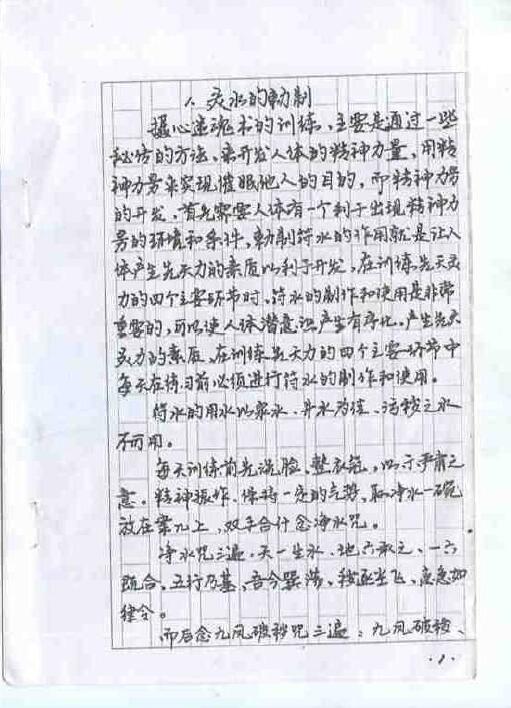 1、灵水的勅制
摄心迷魂术的训练、主要是通过一些
秘传的方法、来开发人体的精神力量，用精
神力量来实现催眠他人的目的，而精神力量
的开发，首先需要人体有一个利于出现精神力
量的环境和条件，勅制符水的作用就是让人
体产生先天力的素质以利于开发，在训练先天灵
力的四个主要环节时、符水的制作和使用是非常
重要的，可以使人体潜意识产生有序化、产生先天
灵力的素质、在训练先天力的四个主要环节中
每天在练习前必须进行符水的制作和使用。
符水的用水以泉水、井水为佳、污秽之水
不可用。
每天训练前先洗脸、整衣冠，以示严肃之
意，精神振作、保持一定的气势，取净水一碗
放在案几上，双手合什念净水咒。
净水咒三遍、天一生水、地六承之、一六
既合、五行乃基、吾今噀荡、秽逐尘飞、急急如
律令。
而后念九凤破秽咒三遍：九凤破秽、
·1·